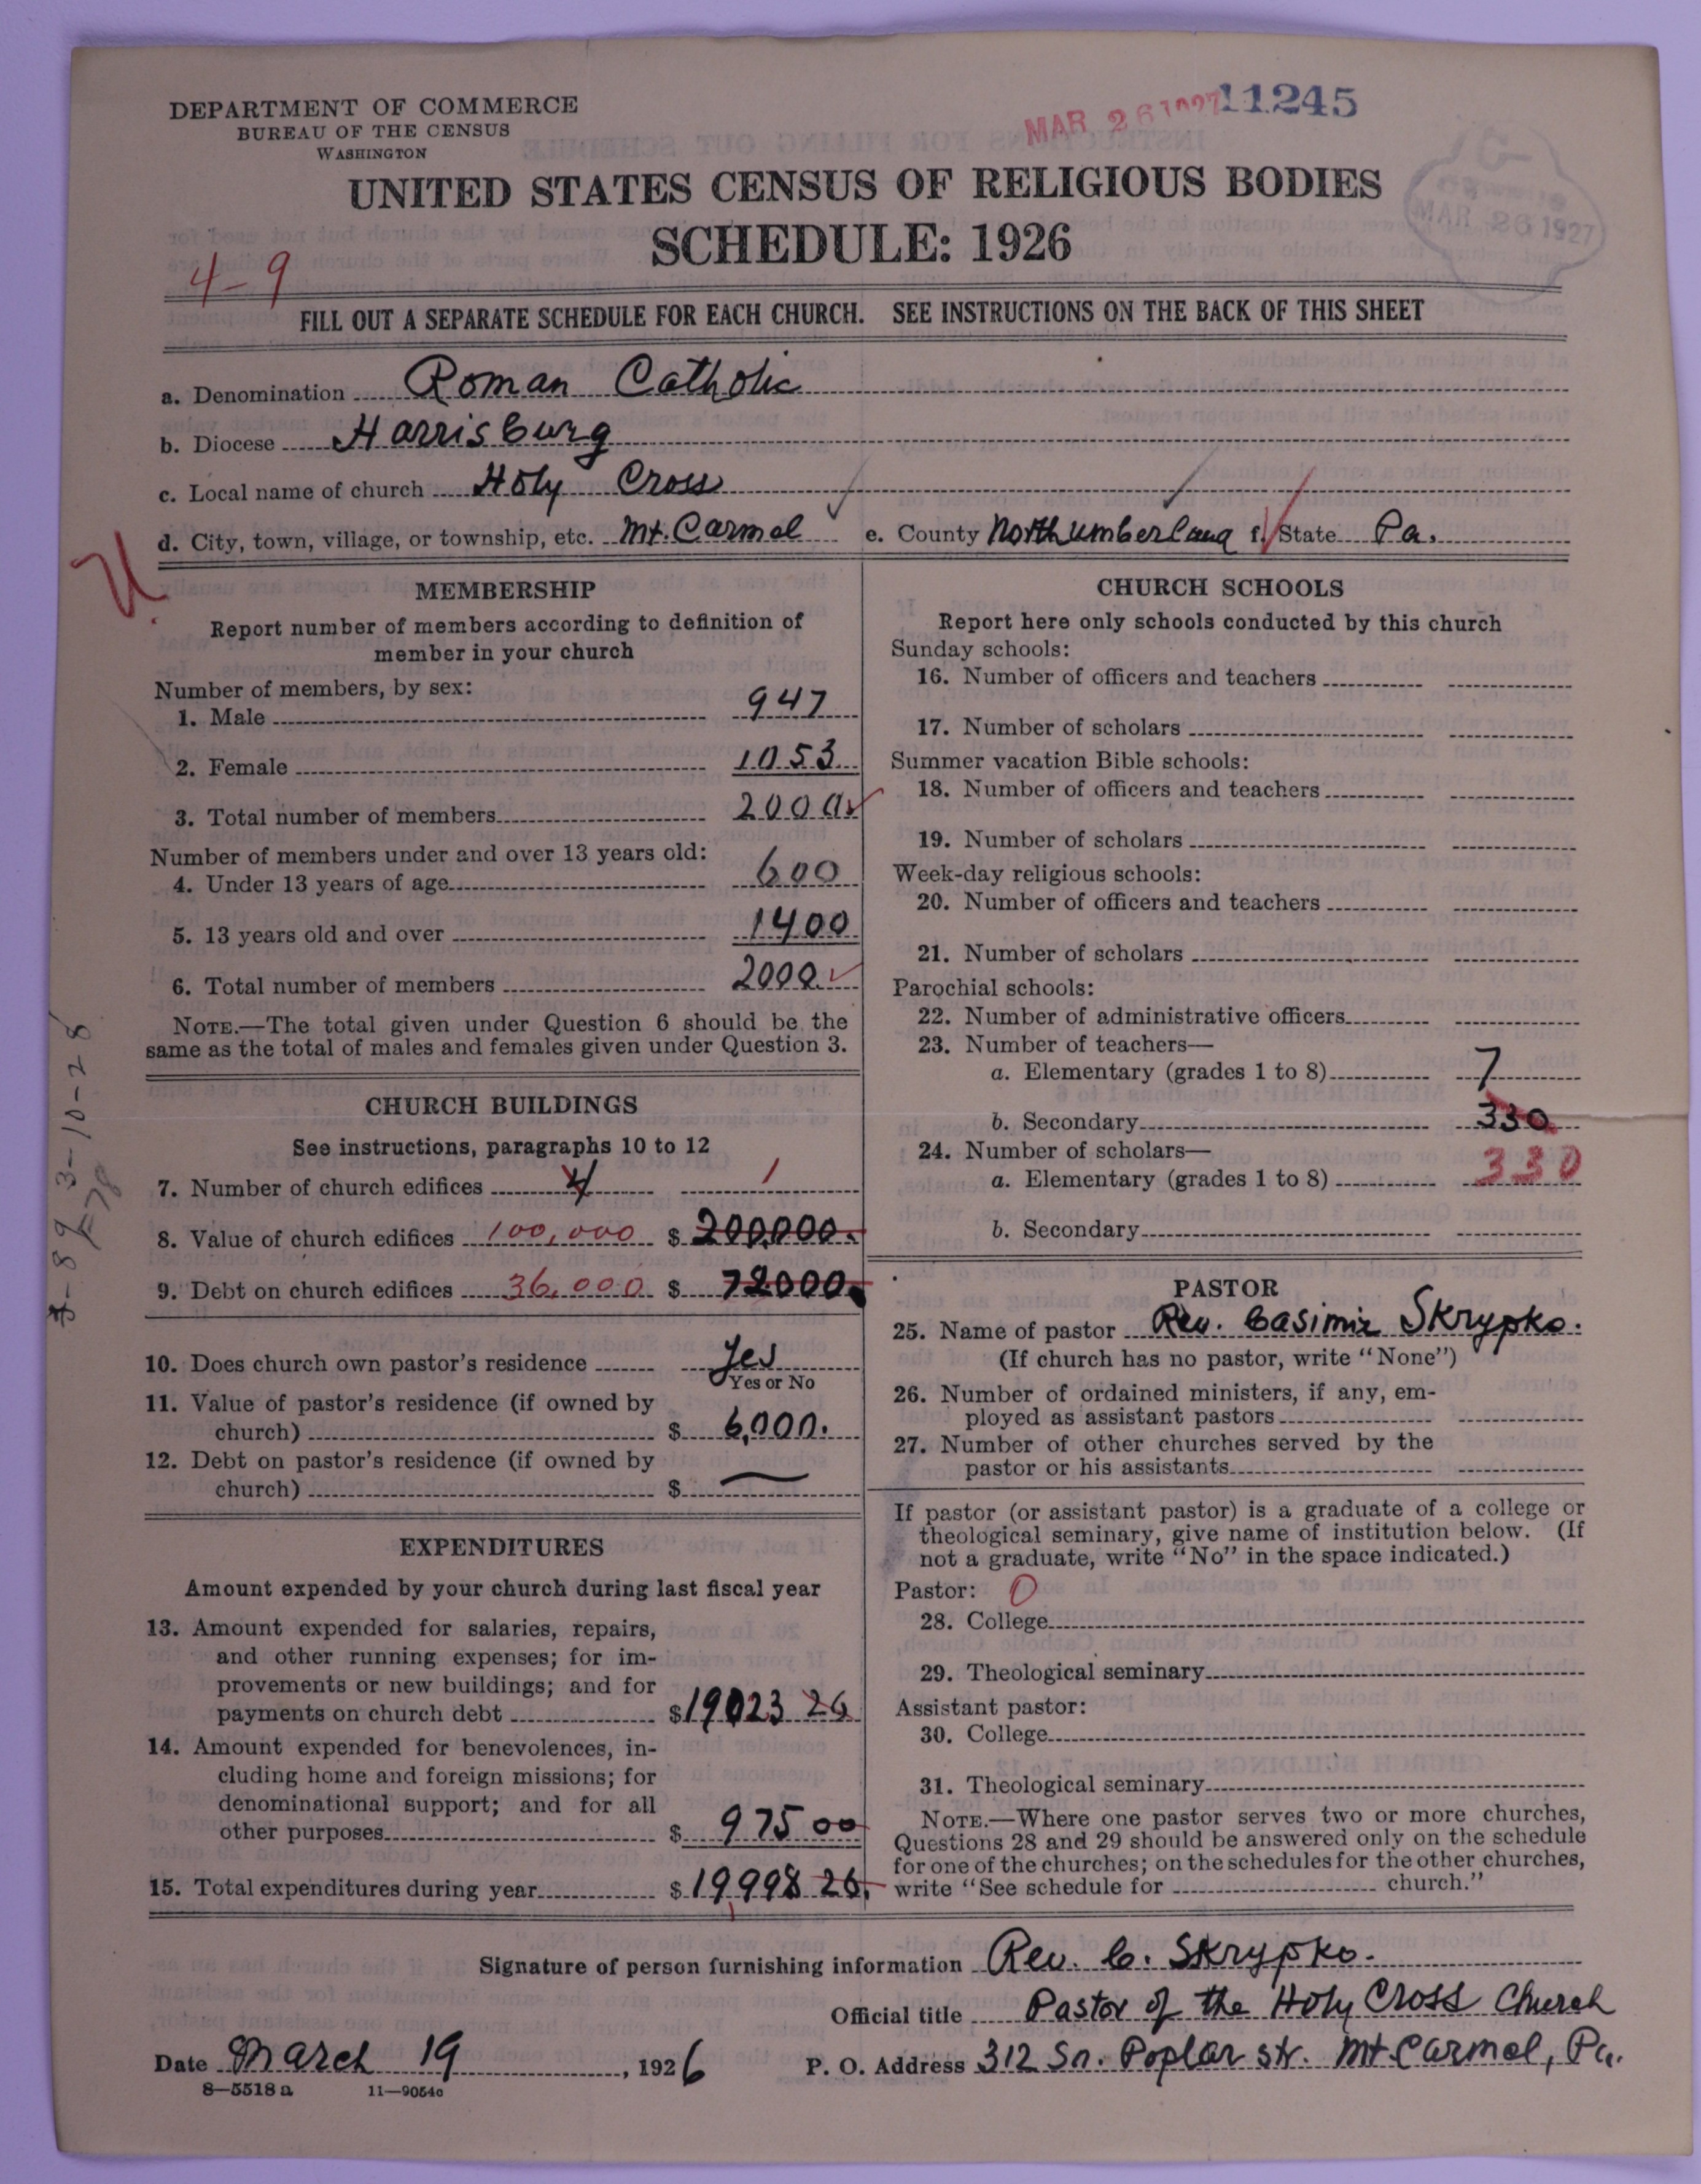 DEPARTMENT OF COMMERCE
BUREAU OF THE CENSUS
WASHINGTON
MAR 26 1927
11245
MAR 26 1927
UNITED STATES CENSUS OF RELIGIOUS BODIES
SCHEDULE: 1926
4-9
FILL OUT A SEPARATE SCHEDULE FOR EACH CHURCH. SEE INSTRUCTIONS ON THE BACK OF THIS SHEET
a. Denomination Roman Catholic
b. Diocese Harrisburg
c. Local name of church Holy Cross
d. City, town, village, or township, etc. Mt. Carmel e. County Northumberland f. State Pa.
MEMBERSHIP
Report number of members according to definition of
member in your church
Number of members, by sex:
1. Male 947
2. Female 1053
3. Total number of members 2000
Number of members under and over 13 years old:
4. Under 13 years of age 600
5. 13 years old and over 1400
6. Total number of members 2000
NOTE.—The total given under Question 6 should be the
same as the total of males and females given under Question 3.
CHURCH BUILDINGS
See instructions, paragraphs 10 to 12
7. Number of church edifices 1
8. Value of church edifices 100,000 $ 200,000.
9. Debt on church edifices 36,000 $ 72000
10. Does church own pastor's residence Yes
Yes or No
11. Value of pastor's residence (if owned by
church) $ 6,000.
12. Debt on pastor's residence (if owned by
church) $ —
EXPENDITURES
Amount expended by your church during last fiscal year
13. Amount expended for salaries, repairs,
and other running expenses; for im-
provements or new buildings; and for
payments on church debt $19023 26
14. Amount expended for benevolences, in-
cluding home and foreign missions; for
denominational support; and for all
other purposes $ 975 00
15. Total expenditures during year $ 19,998 26.
CHURCH SCHOOLS
Report here only schools conducted by this church
Sunday schools:
16. Number of officers and teachers
17. Number of scholars
Summer vacation Bible schools:
18. Number of officers and teachers
19. Number of scholars
Week-day religious schools:
20. Number of officers and teachers
21. Number of scholars
Parochial schools:
22. Number of administrative officers
23. Number of teachers—
a. Elementary (grades 1 to 8) 7
b. Secondary 330
24. Number of scholars—
a. Elementary (grades 1 to 8) 330
b. Secondary
PASTOR
25. Name of pastor Rev. Casimir Skrypko.
(If church has no pastor, write "None")
26. Number of ordained ministers, if any, em-
ployed as assistant pastors
27. Number of other churches served by the
pastor or his assistants
If pastor (or assistant pastor) is a graduate of a college or
theological seminary, give name of institution below. (If
not a graduate, write "No" in the space indicated.)
Pastor: 0
28. College
29. Theological seminary
Assistant pastor:
30. College
31. Theological seminary
NOTE.—Where one pastor serves two or more churches,
Questions 28 and 29 should be answered only on the schedule
for one of the churches; on the schedules for the other churches,
write "See schedule for church."
Signature of person furnishing information Rev. C. Skrypko.
Official title Pastor of the Holy Cross Church
Date March 19, 1926 P. O. Address 312 So. Poplar str. Mt. Carmel, Pa.
8—5518 a 11—9054c